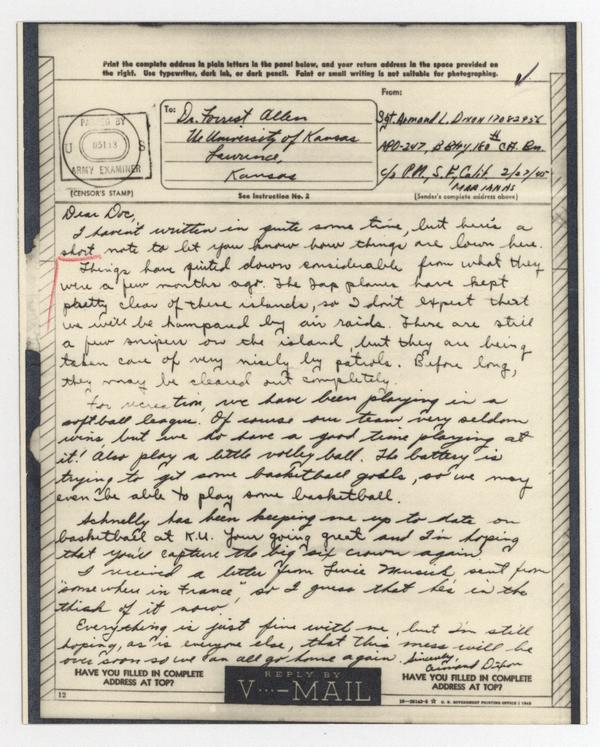 Print the complete address in plain letters in the panel below, and your return address in the space provided on
the right. Use typewriter, dark ink, or dark pencil. Faint or small writing is not suitable for photographing.
PASSED BY
U S
ARMY EXAMINER
(CENSOR'S STAMP)
To:
Dr. Forrest Allen
The University of Kansas
Lawrence,
Kansas
See Instruction No. 2
From:
Sgt. Armond L. Dixon 17082956
APO-247, B Btry, 180th CA. Bn.
c/o P.M., S.F., Calif. 2/27/45
MARIANAS
(Sender's complete address above)
Dear Doc,
I haven't written in quite some time, but here's a
short note to let you know how things are down here.
Things have quited down considerable from what they
were a few months ago. The Jap planes have kept
pretty clear of these islands, so I don't expect that
we will be hampared by air raids. There are still
a few snipers on the island but they are being
taken care of very nicely by patrols. Before long,
they may be cleared out completely.
For recreation, we have been playing in a
softball league. Of course our team very seldom
wins, but we do have a good time playing at
it! Also play a little volley ball. The battery is
trying to git some basketball goals, so we may
even be able to play some basketball.
Schnelly has been keeping me up to date on
basketball at K.U. Your going great and I'm hoping
that you'll capture the big six crown again.
I received a letter from Musick sent from
"somewhere in France," so I guess that he's in the
thick of it now.
Everything is just fine with me, but I'm still
hoping, as is everyone else, that this mess will be
over soon so we can all go home again. Sincerely,
Armond Dixon
HAVE YOU FILLED IN COMPLETE
ADDRESS AT TOP?
REPLY BY
V···—MAIL
HAVE YOU FILLED IN COMPLETE
ADDRESS AT TOP?
12
U. S. GOVERNMENT PRINTING OFFICE : 1943